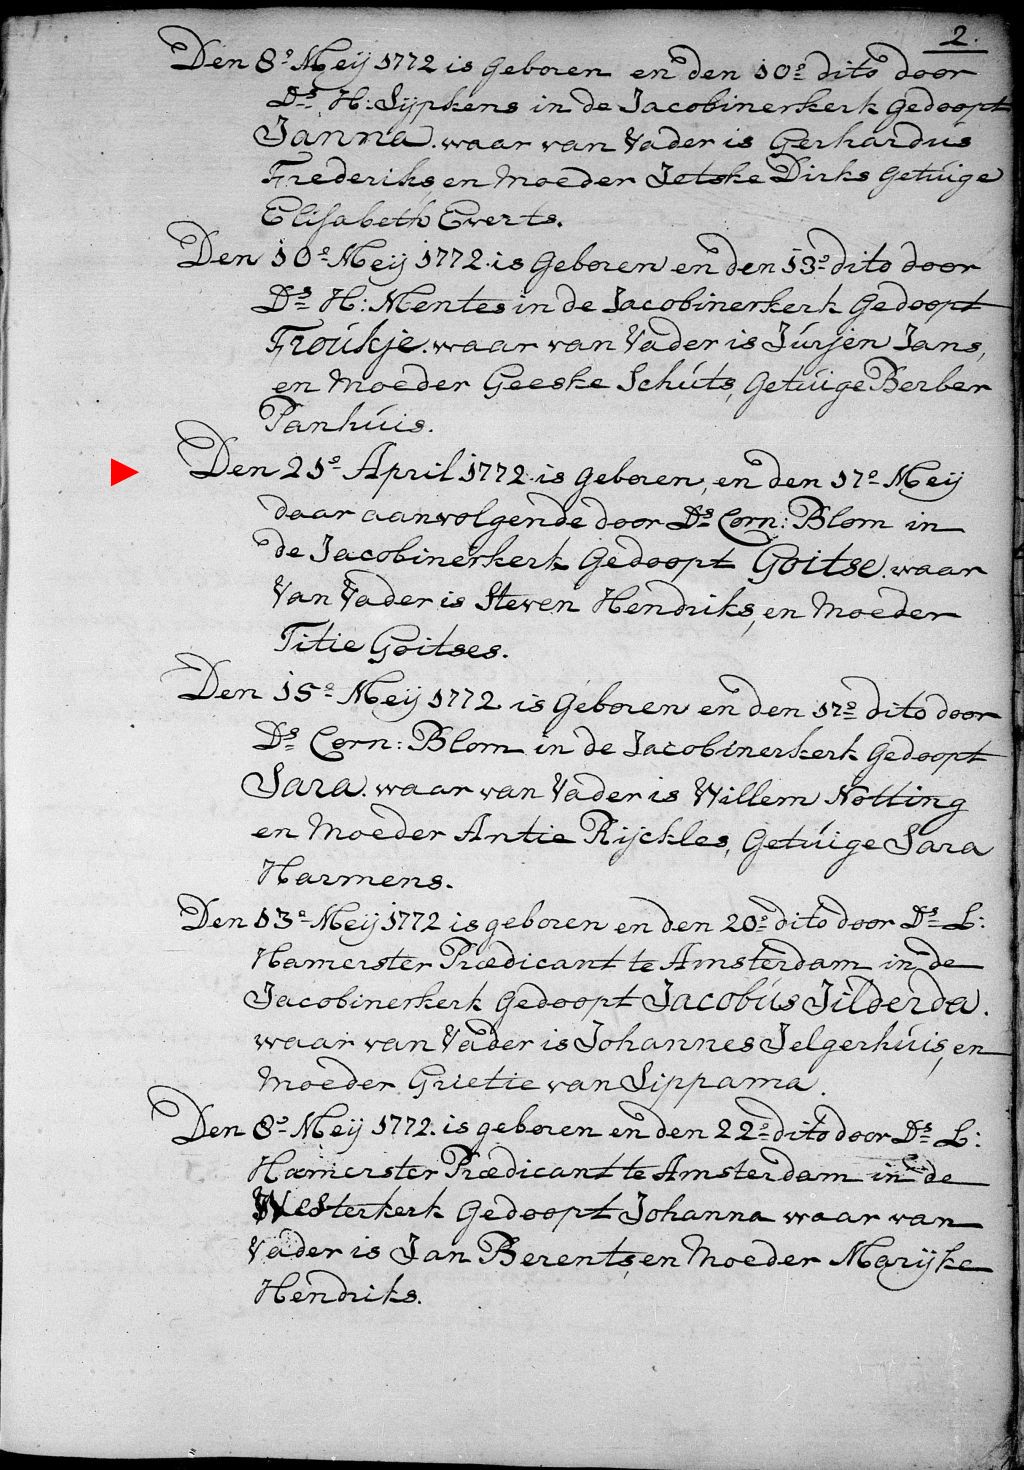 2.
Den 8.e Meij 1772 is Geboren en den 10.e dito door
D.s H: Sijpkens in de Jacobinerkerk Gedoopt
Janna. waar van Vader is Gerhardus
Frederiks, en Moeder Jetske Dirks Getuige
Elisabeth Everts.
Den 10.e Meij 1772. is Geboren en den 13.e dito door
D.s H: Mentes in de Jacobinerkerk Gedoopt
Froukje. waar van Vader is Jurjen Jans,
en Moeder Geeske Schuts, Getuige Berber
Panhuis.
Den 21.e April 1772. is Geboren, en den 17.e Meij
daar aanvolgende door D.s Corn: Blom in
de Jacobinerkerk Gedoopt Goitse. waar
Van Vader is Steven Hendriks, en Moeder
Titie Goitses.
Den 15.e Meij 1772 is Geboren en den 17.e dito door
D.s Corn: Blom in de Jacobinerkerk Gedoopt
Sara. waar van Vader is Willem Notting
en Moeder Antie Rijckles, Getuige Sara
Harmens.
Den 13.e Meij 1772 is geboren en den 20.e dito door D.s L:
Hamerster Prædicant te Amsterdam in de
Jacobinerkerk Gedoopt Jacobus Jilderda.
waar van Vader is Johannes Jelgerhuis, en
Moeder Grietie van Sippama.
Den 8.e Meij 1772. is geboren en den 22.e dito door D.s L:
Hamerster Prædicant te Amsterdam in de
Westerkerk Gedoopt Johanna waar van
Vader is Jan Berents, en Moeder Marijke
Hendriks.